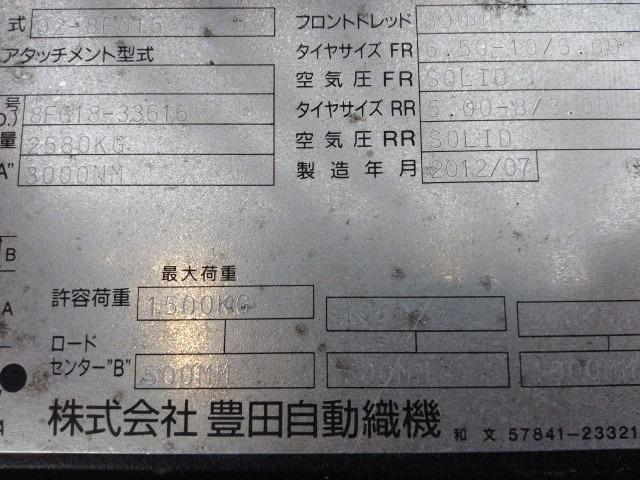 式 02-8FG15 フロントトレッド
アタッチメント型式 タイヤサイズ FR 6.50-10/5.00
空気圧 FR SOLID
号 8FG18-33616 タイヤサイズ RR 5.00-8/3.00
量 2580KG 空気圧 RR SOLID
A" 3000MM 製造年月 2012/07
B
最大荷重
A 許容荷重 1500KG
ロード
センター"B" 500MM
株式会社 豊田自動織機 和文 57841-23321